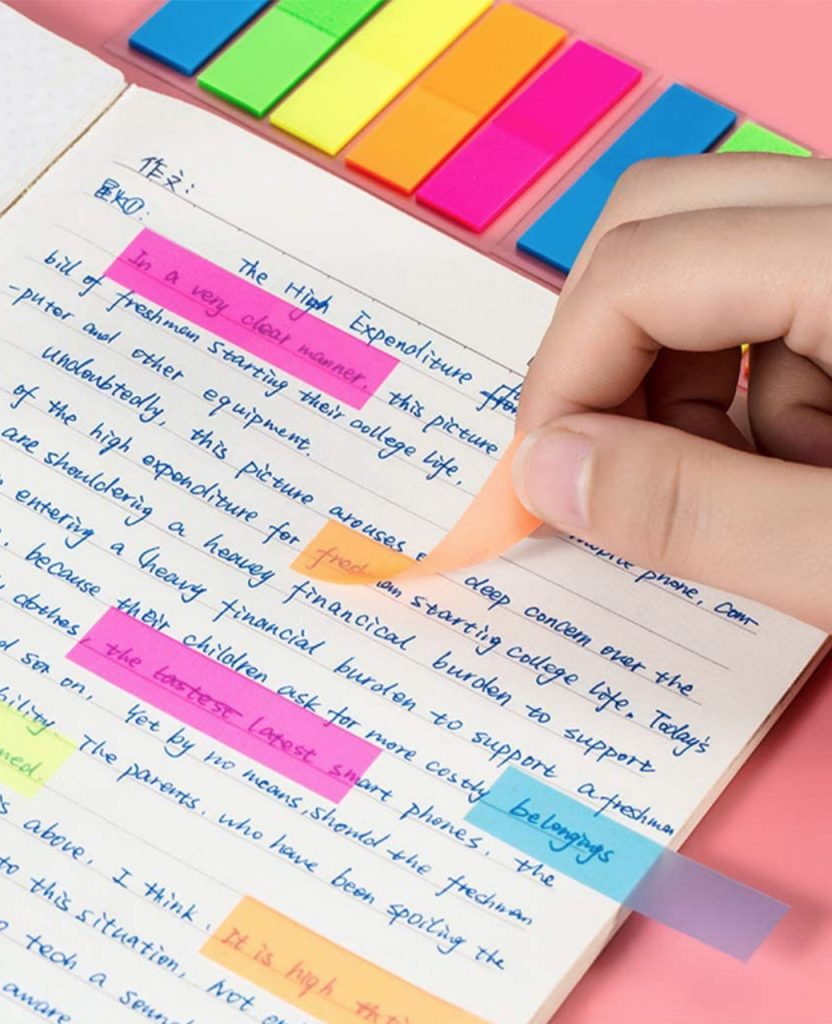 作文:
星火①:
The High Expenditure
In a very clear manner, this picture
mobile phone, com-
bill of freshman starting their college life.
-puter and other equipment.
undoubtedly, this picture arouses deep concern over the
of the high expenditure for fresh an starting college life. Today's
are shouldering a heavey financical burden to support
entering a (heavy financial burden to support a freshman
, because their children ask for more costly belongings
clothes, the tastest latest smart phones, the
d son on. Yet by no means, should the freshman
bility. The parents, who have been spoiling the
med.
s above, I think, It is high
to this situation. Not
tech a soun
aware